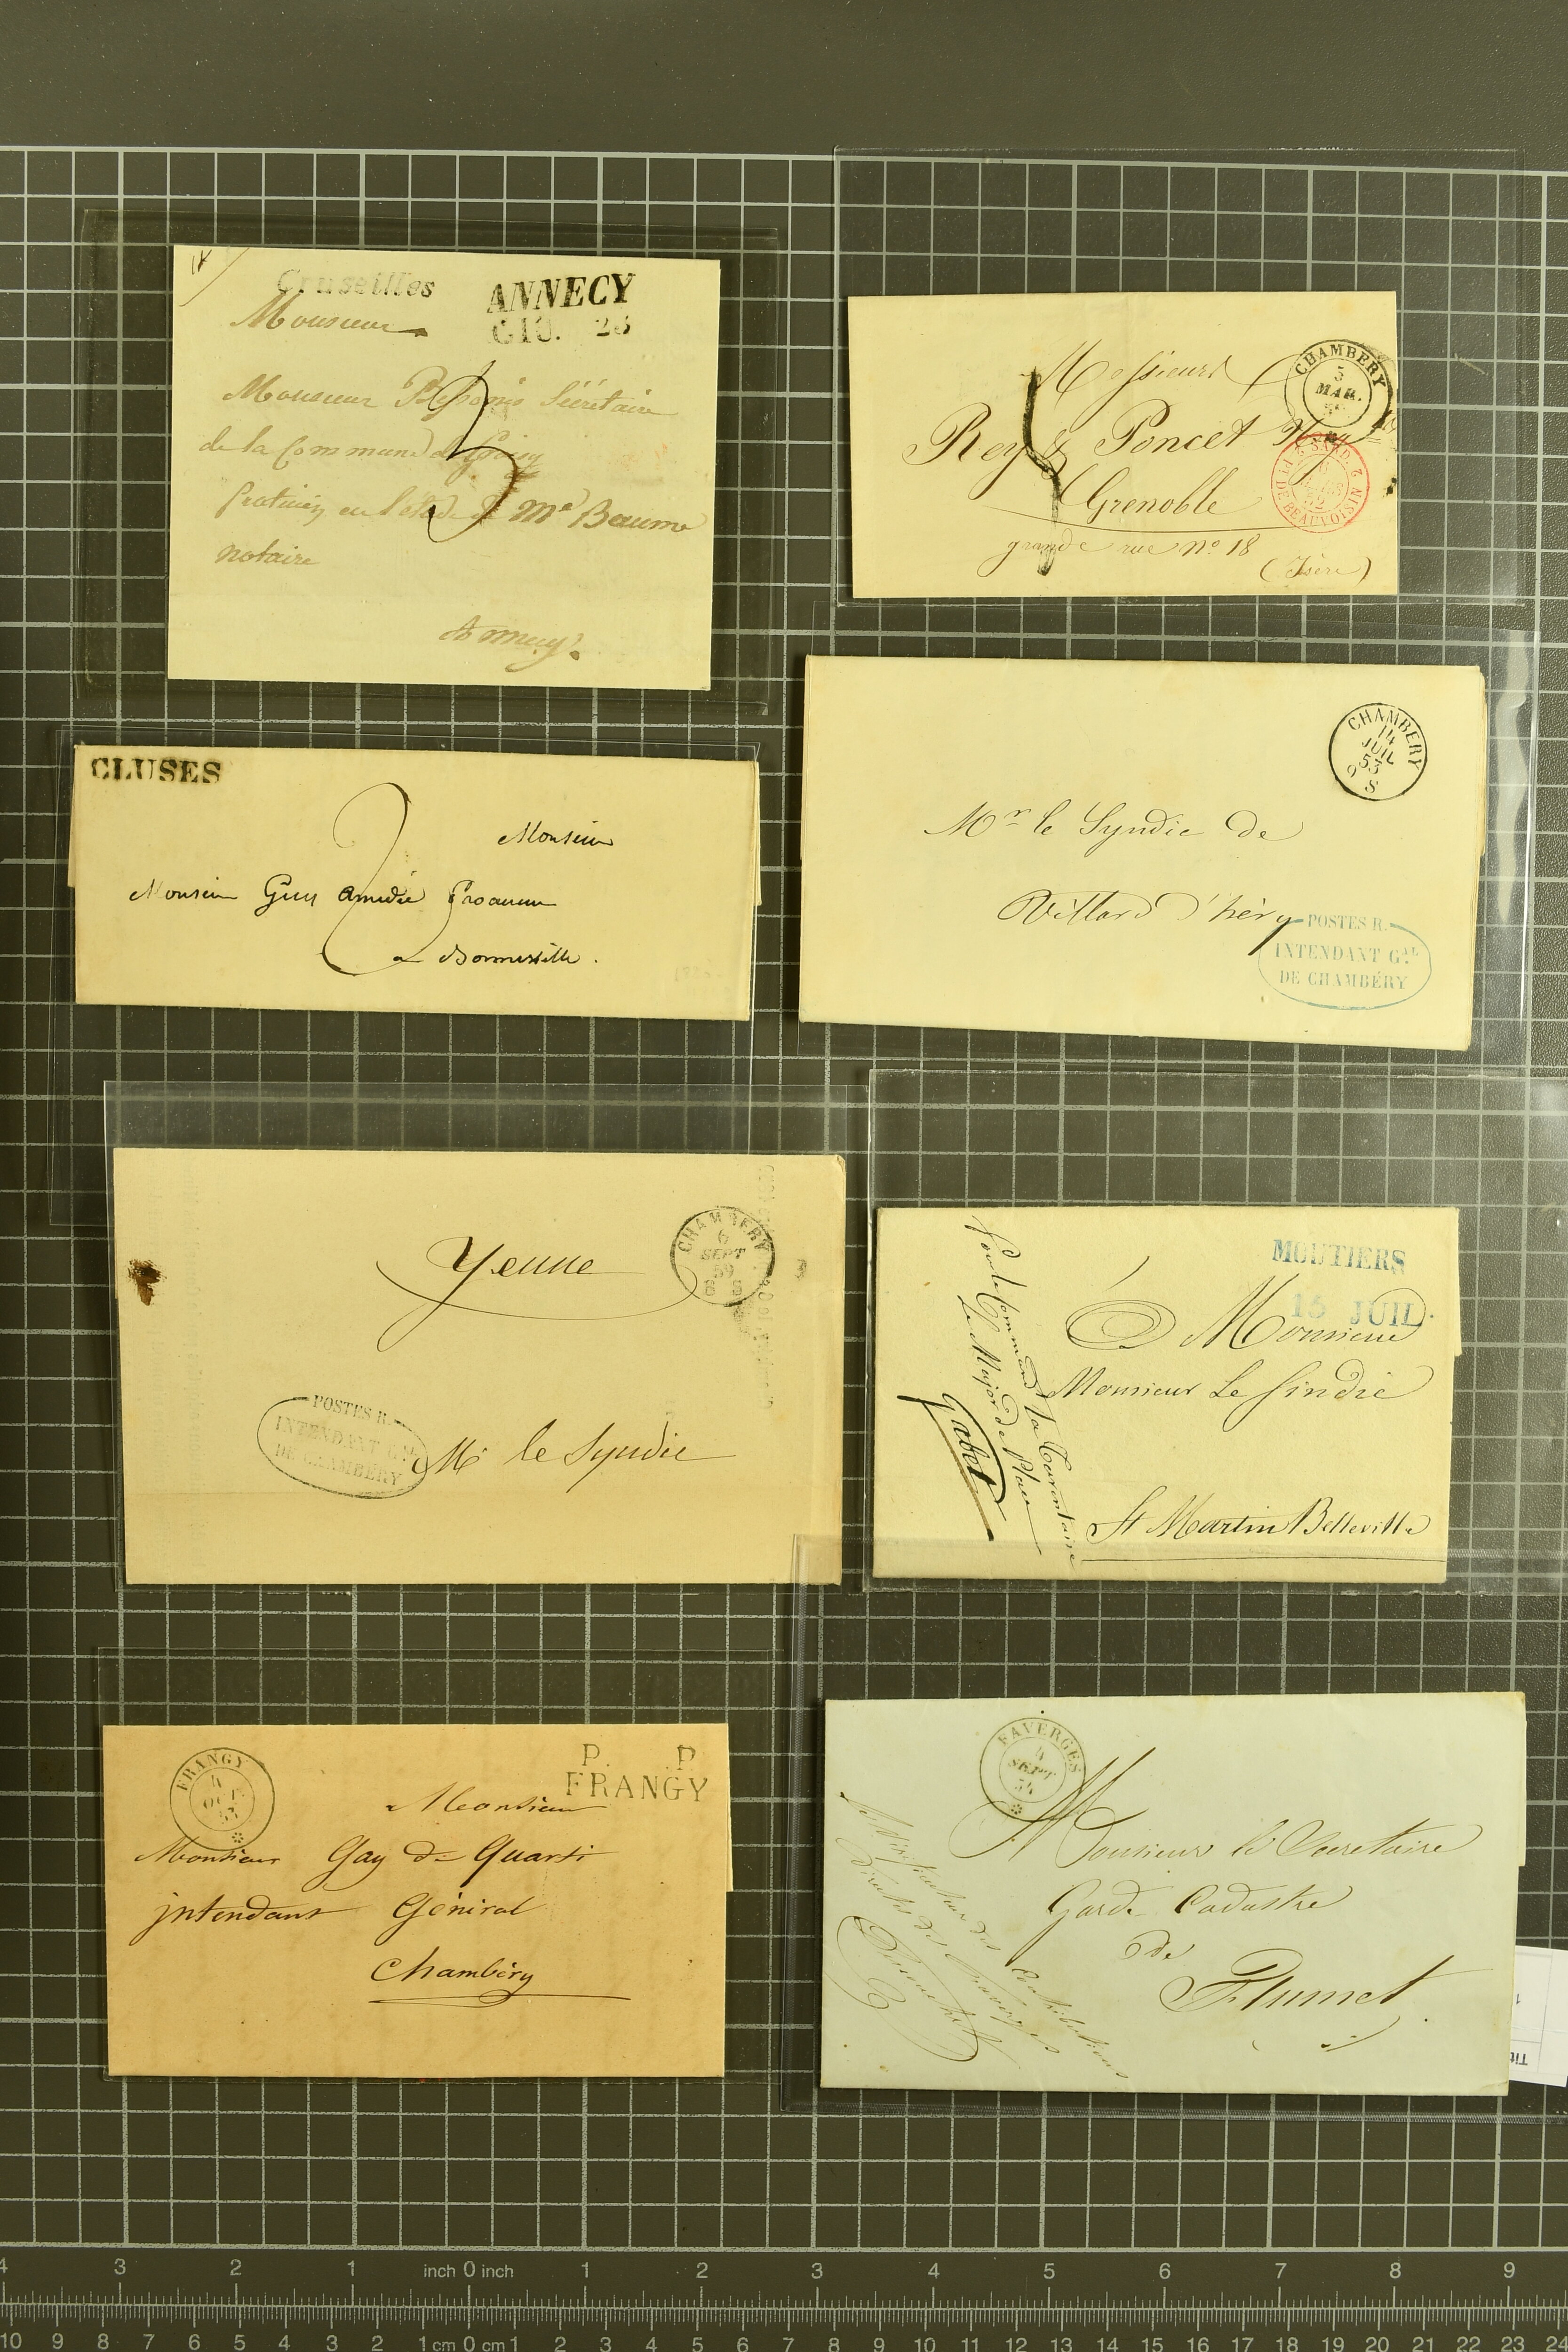 Cruseilles
ANNECY
GIU. 26
Monsieur
Monsieur Secrétaire
de la Commune de
en l'étude de Me Beaume
notaire
Annecy.
CHAMBERY
3
MAR.
Messieurs
Rey & Poncet
Grenoble
grande rue No 18
(Isère)
2 SARD. 2
PT DE BEAUVOISIN
CLUSES
2
Monsieur
Monsieur Guy Amédée
a Bonneville.
CHAMBERY
14
JUIL
53
9 S
Mr le Syndic de
Villard d'héry
POSTES R.
INTENDANT GAL
DE CHAMBÉRY
CHAMBERY
6
SEPT
59
6 S
Yenne
POSTES R.
INTENDANT GAL
DE CHAMBÉRY
Mr le Syndic
MOUTIERS
15 JUIL.
A Monsieur
Monsieur Le Sindic
St Martin Belleville
Pour le Command. La Tarentaise
Le Major de Place
Gabet
FRANGY
4
OCT
53
P. P.
FRANGY
A Monsieur
Monsieur Gay de Quarti
intendant Géniral
Chambéry
FAVERGES
4
SEPT
54
A Monsieur le Secretaire
Garde Cadastre
de
Flumet
des Contributions
directes de Faverges
Tit
1
4 3 2 1 inch 0 inch 1 2 3 4 5 6 7 8 9
10 9 8 7 6 5 4 3 2 1 cm 0 cm 1 2 3 4 5 6 7 8 9 10 11 12 13 14 15 16 17 18 19 20 21 22 23 24